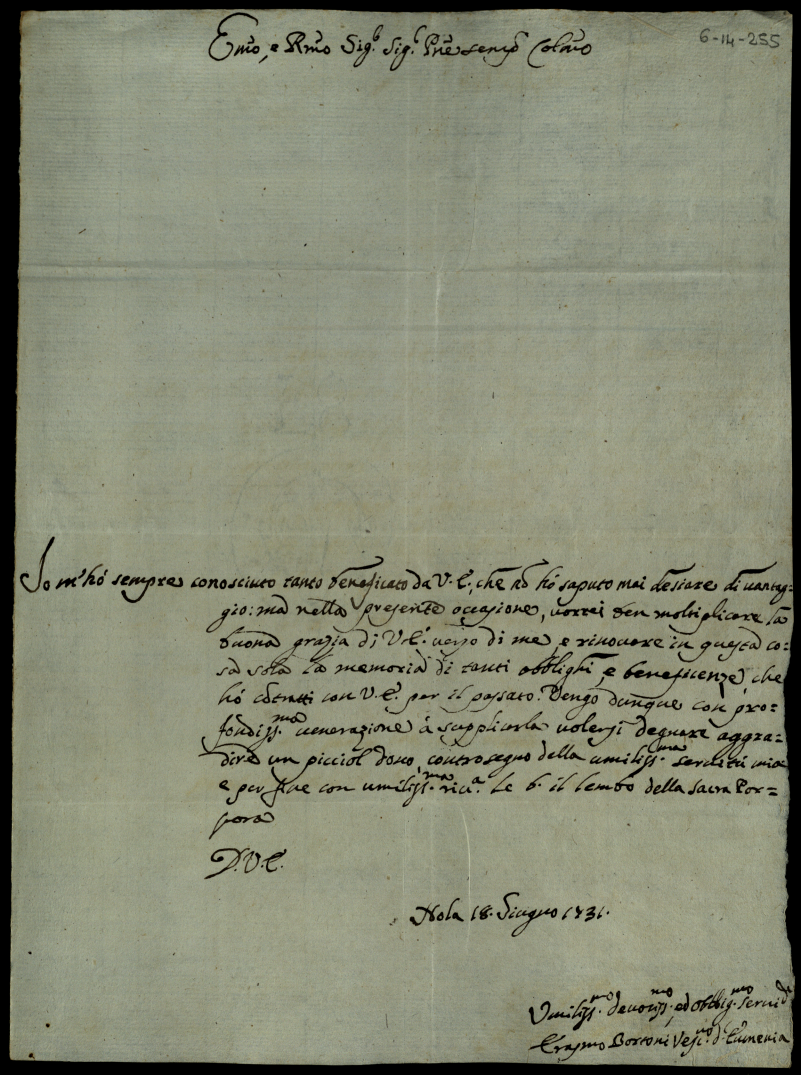 6-14-255
Emo, e Rmo Sig.r Sig.r Pne semp Colmo
Io m'hó sempre conosciuto tanto beneficato da V. E., che nõ hó saputo mai desiare di vantag=
gio: ma nella presente occasione, vorrei ben moltiplicare la
buona grazia di V.E. verso di me, e rinovare in questa co=
sa sola la memoria di tanti obblighi, e beneficenze, che
hó cõtratti con V. E. per il passato. Vengo dunque con pro=
fondiss.ma venerazione á supplicarla volersi degnare aggra=
dire un picciol dono, controsegno della umiliss.ma servitú mia
e per fine con umiliss.ma riv.a Le b. il lembo della Sacra Por=
pora
D. V. E.
Nola 18. Giugno 1731.
Umiliss.mo devotiss.mo, ed Obblig.mo Servid.r
Erasmo Bortoni Vesc.vo d'Eumenia